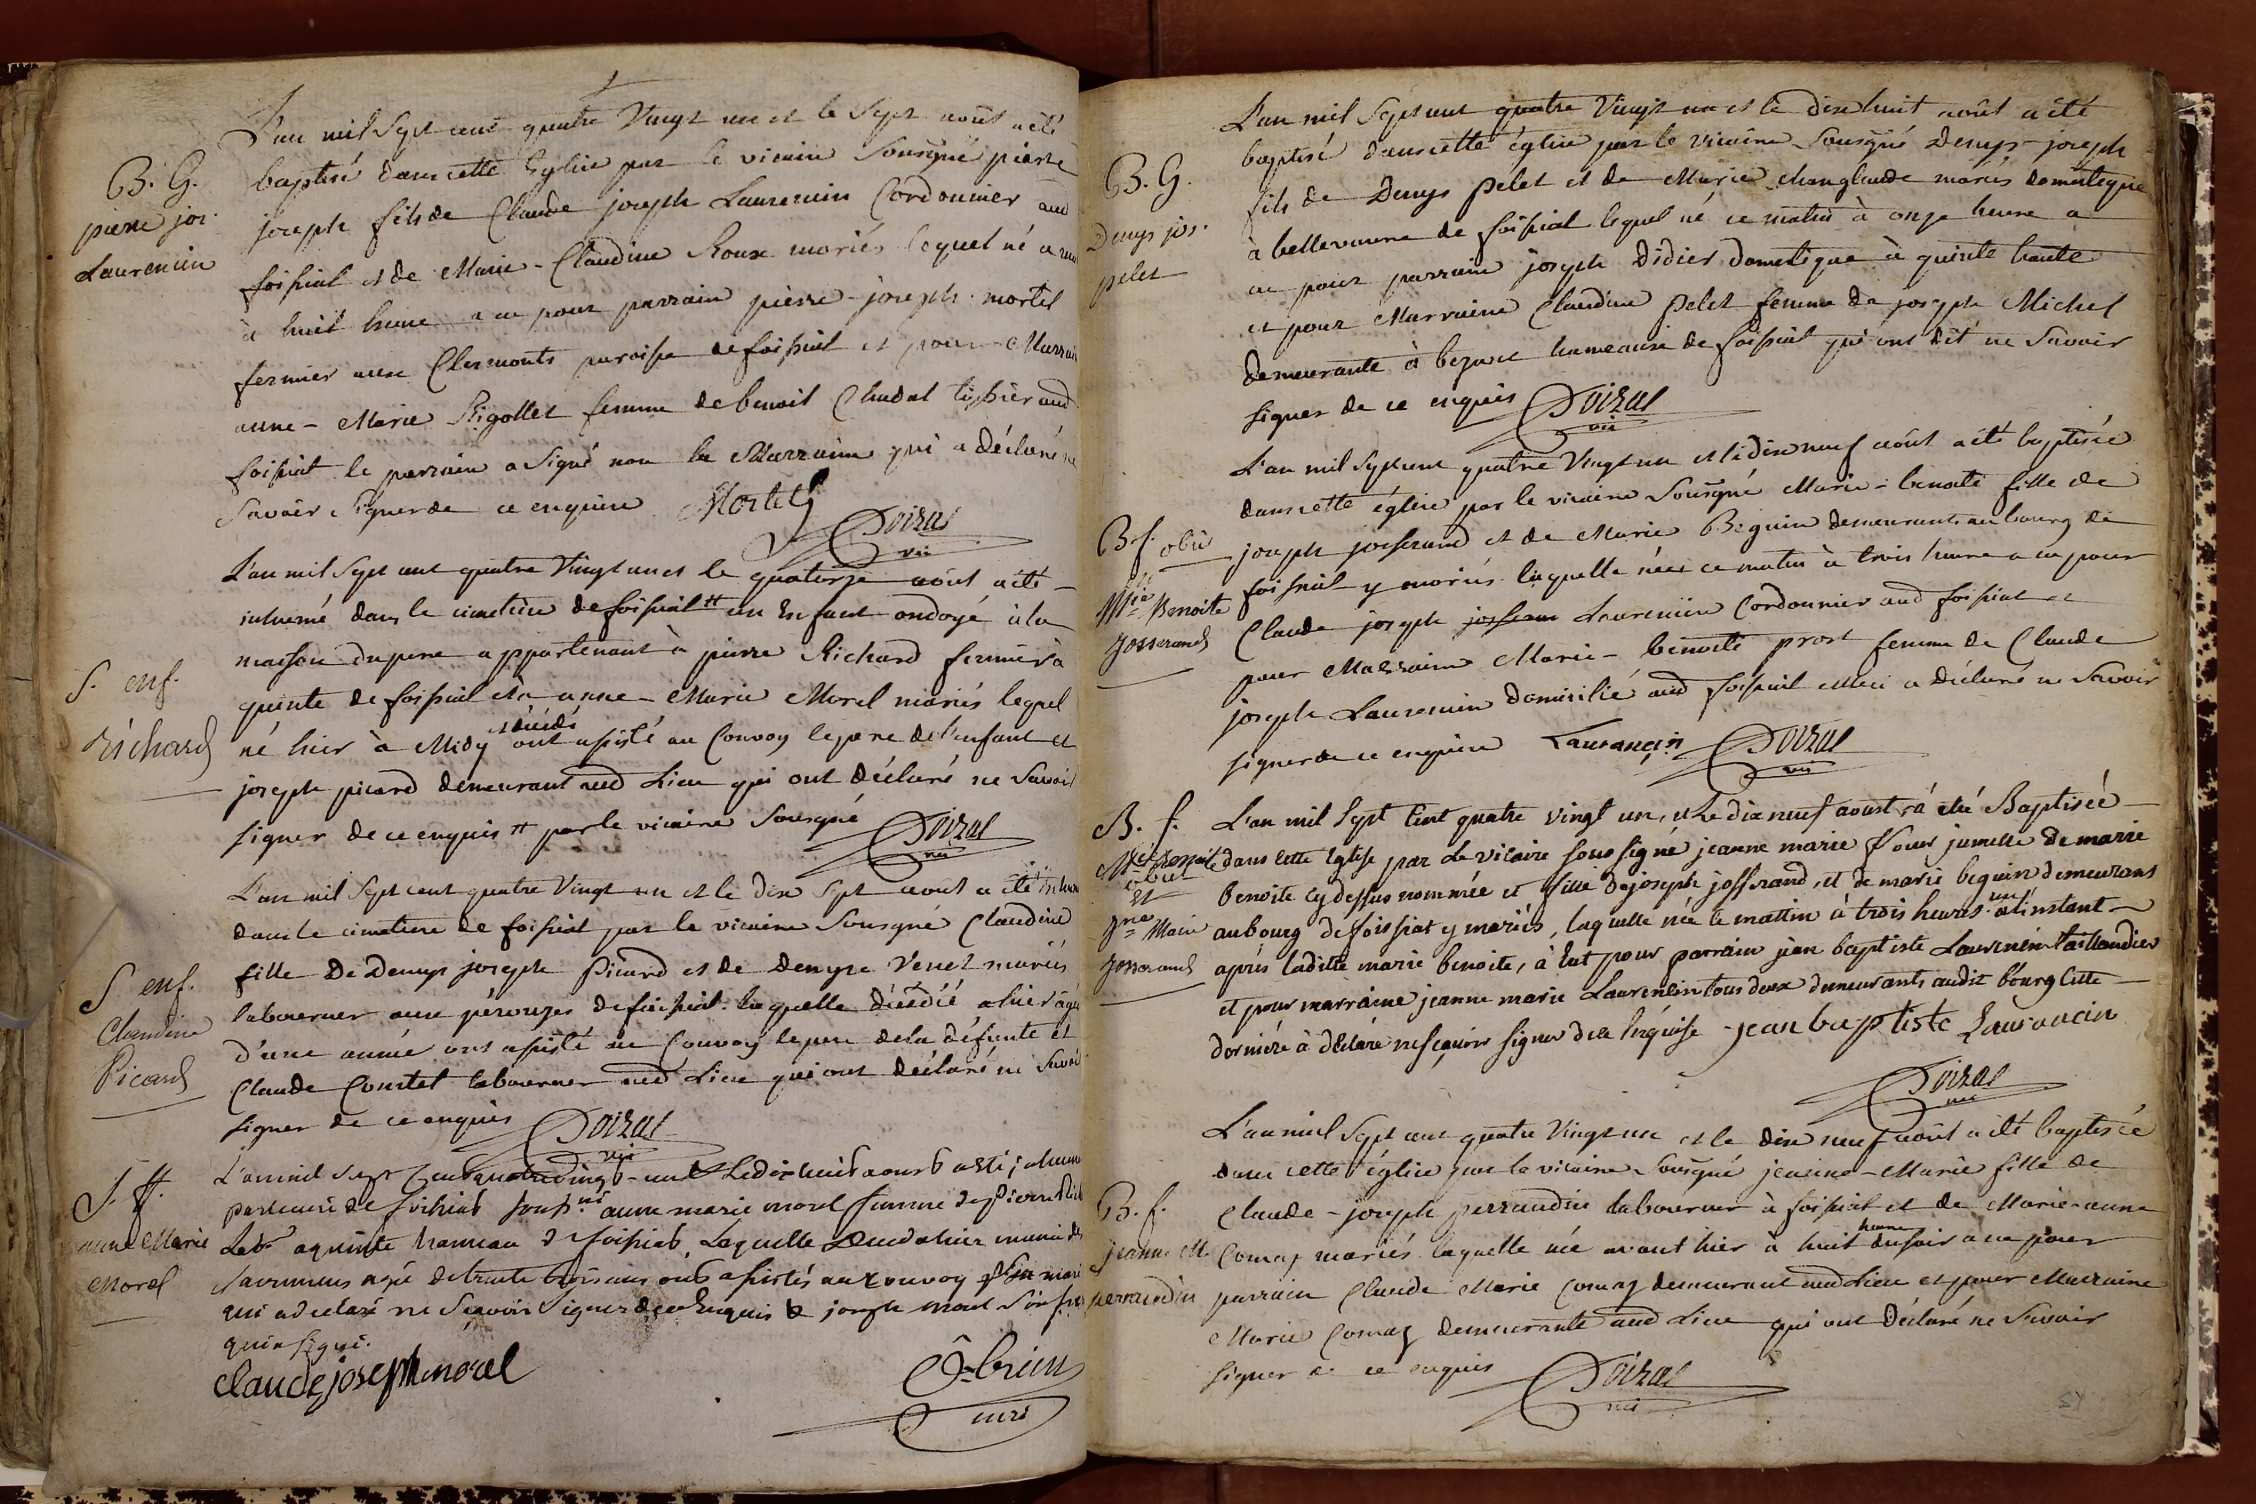 B. G.
pierre jos.
Laurencin
L'an mil Sept cent quatre Vingt un et le Sept août a été
baptisé dans cette Eglise par le vicaire Sousigné pierre
joseph fils de Claude joseph Laurencin Cordonnier aud
foissiat et de Marie-Claudine Roux mariés lequel né
à huit heure a eu pour parrain pierre-joseph mortel
fermier aux Clermonts paroisse de foissiat et pour Marraine
anne-Marie Rigollet femme de benoit Chudal tissier aud
foissiat le parrain a Signé non la Marraine qui a Déclaré ne
Savoir Signer de ce enquise Mortel
Doizat
vic
S. enf.
Richard
L'an mil Sept cent quatre Vingt un et le quatorze août a été
inhumé dans le cimetière de foissiat # un Enfant ondoyé à la
maison du pere appartenant à pierre Richard fermier à
quinte de foissiat et à anne-Marie Morel mariés lequel
né hier à Midy et décédé ont assisté au Convoy le pere de l'enfant et
joseph picard demeurant aud Lieu qui ont déclaré ne Savoir
signer de ce enquis # par le vicaire Sousigné Doizat
vic
S enf.
Claudine
Picard
L'an mil Sept cent quatre Vingt un et le dix Sept août a été
dans le cimetiere de foissiat par le vicaire Sousigné Claudine
fille De Denys joseph Picard et de Denyse Venet mariés
laboureur aux pérouzes de foissiat laquelle décédée hier agée
d'une année ont assisté au Convoy le pere de la défunte et
Claude Courtet laboureur aud Lieu qui ont déclaré ne Savoir
signer de ce enquis Doizat
vic
S. ff.
anne Marie
Morel
L'an mil Sept Cent quatre vingt-un et Le dix huit aoust a été
par le curé de foissiat Souss.né anne marie morel femme de Pierre
Lab.r a quinte hameau de foissiat, Laquelle décéda hier munie des
Sacremens agée de trente trois ans ont assistés au convoy Son mari
qui a declaré ne Sçavoir Signer de ce Enquis & joseph morel Son
qui a signé.
claude joseph morel
curé
B. G.
Denys jos.
pelet
L'an mil Sept cent quatre Vingt un et le dix huit août a été
baptisé dans cette église par le vicaire Sousigné Denys-joseph
fils de Denys pelet et de Marie mariés domestique
à bellevavre de foissiat lequel né ce matin à onze heure a
eu pour parrain joseph Didier domestique à quinte haute
et pour Marraine Claudine pelet femme de joseph Michel
demeurante à bezace hameaux de foissiat qui ont dit ne Savoir
signer de ce enquis Doizat
vic
B. f. obiit
M.ie Benoite
Josserand
L'an mil Sept cent quatre Vingt un et le dix neuf août a été baptisée
dans cette église par le vicaire Sousigné Marie-benoite fille de
joseph josserand et de Marie Beguin demeurants au bourg de
foissiat y mariés laquelle née ce matin à trois heure a eu pour
Claude joseph Laurencin Cordonnier aud foissiat et
pour Marraine Marie-benoite prost femme de Claude
joseph Laurencin domicilié aud foissiat elle a Déclaré ne Savoir
signer de ce enquise Laurançin Doizat
vic
B. f.
obiit
et
J.ne Marie
Josserand
L'an mil Sept Cent quatre vingt un, et Le dix neuf aoust, à été Baptisée
dans cette Eglise par Le vicaire sous signé jeanne marie soeur jumelle de marie
Benoite cy dessus nommée et fille de joseph josserand, et de marie beguin demeurans
au bourg de foissiat y mariés, laquelle née ce mattin à trois heures un instant
après laditte marie benoite, à Eut pour parrain jean baptiste Laurencin taillandier
et pour marraine jeanne marie Laurencin tous deux demeurants audit bourg cette
derniere à déclaré ne sçavoir signer de ce Enquise jean baptiste Laurancin
Doizat
vic
B. f.
jeanne M.
perraudin
L'an mil Sept cent quatre Vingt un et le dix neuf août a été baptisée
dans cette église par le vicaire Sousigné jeanne-Marie fille de
Claude-joseph perraudin laboureur à foissiat et de Marie-anne
Comaz mariés laquelle née avant hier à huit heure du soir a eu pour
parrain Claude Marie Comaz demeurant aud Lieu et pour Marraine
Marie Comaz demeurante aud Lieu qui ont Déclaré ne Savoir
signer de ce enquis Doizat
vic